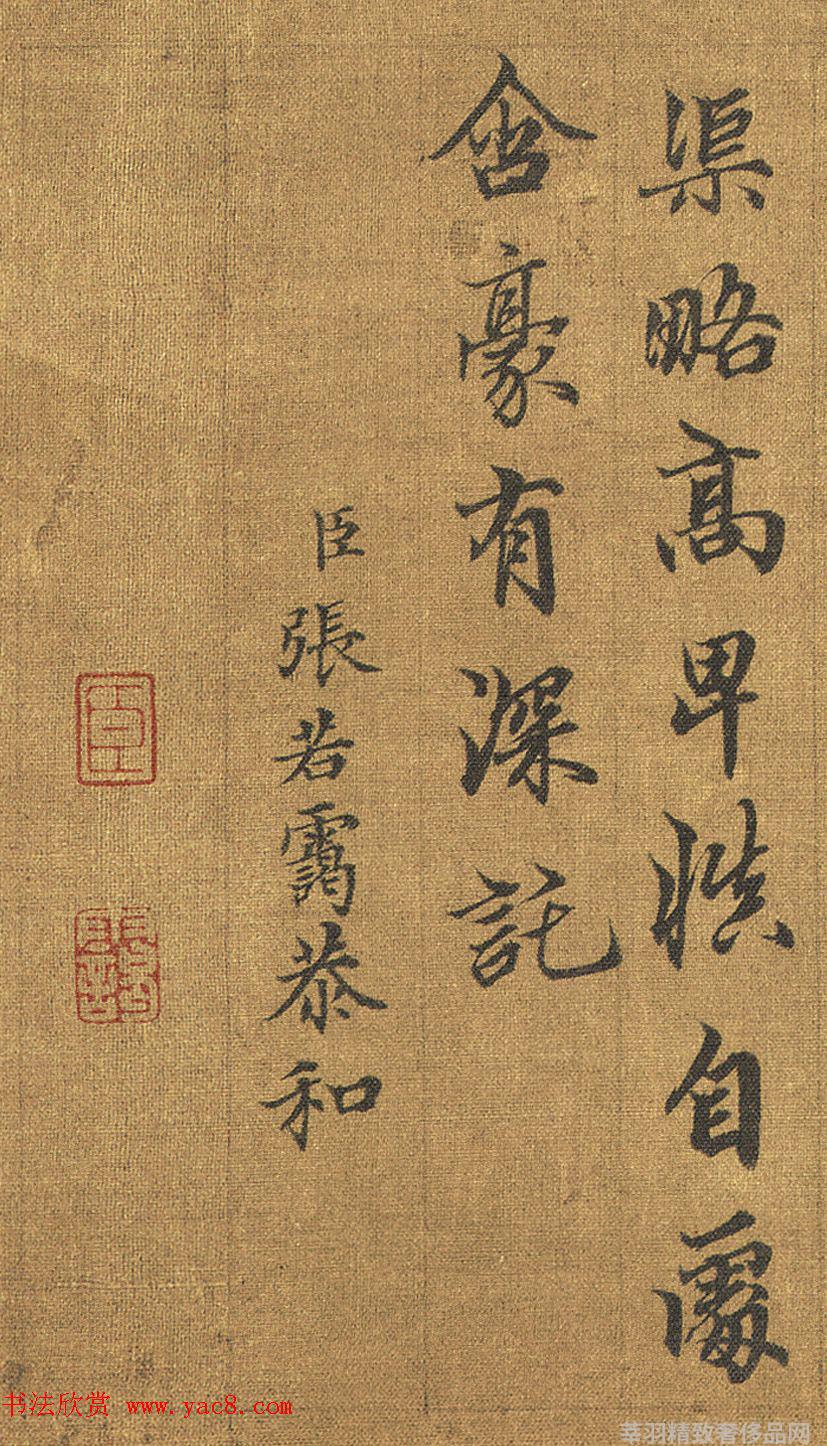 渠略高卑慎自處
含豪有深託
臣張若靄恭和
书法欣赏 www.yac8.com
莘羽精致奢侈品网